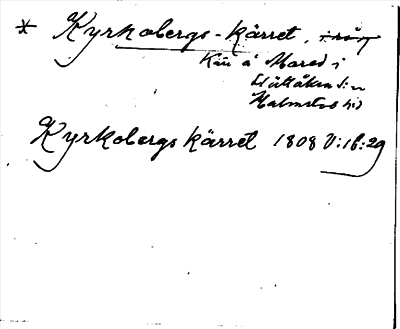 * Kyrkobergs-kärret,
Kärr å Mared i
Slättåkra s:n
Halmstad hd
Kyrkobergs kärret 1808 V:16:29